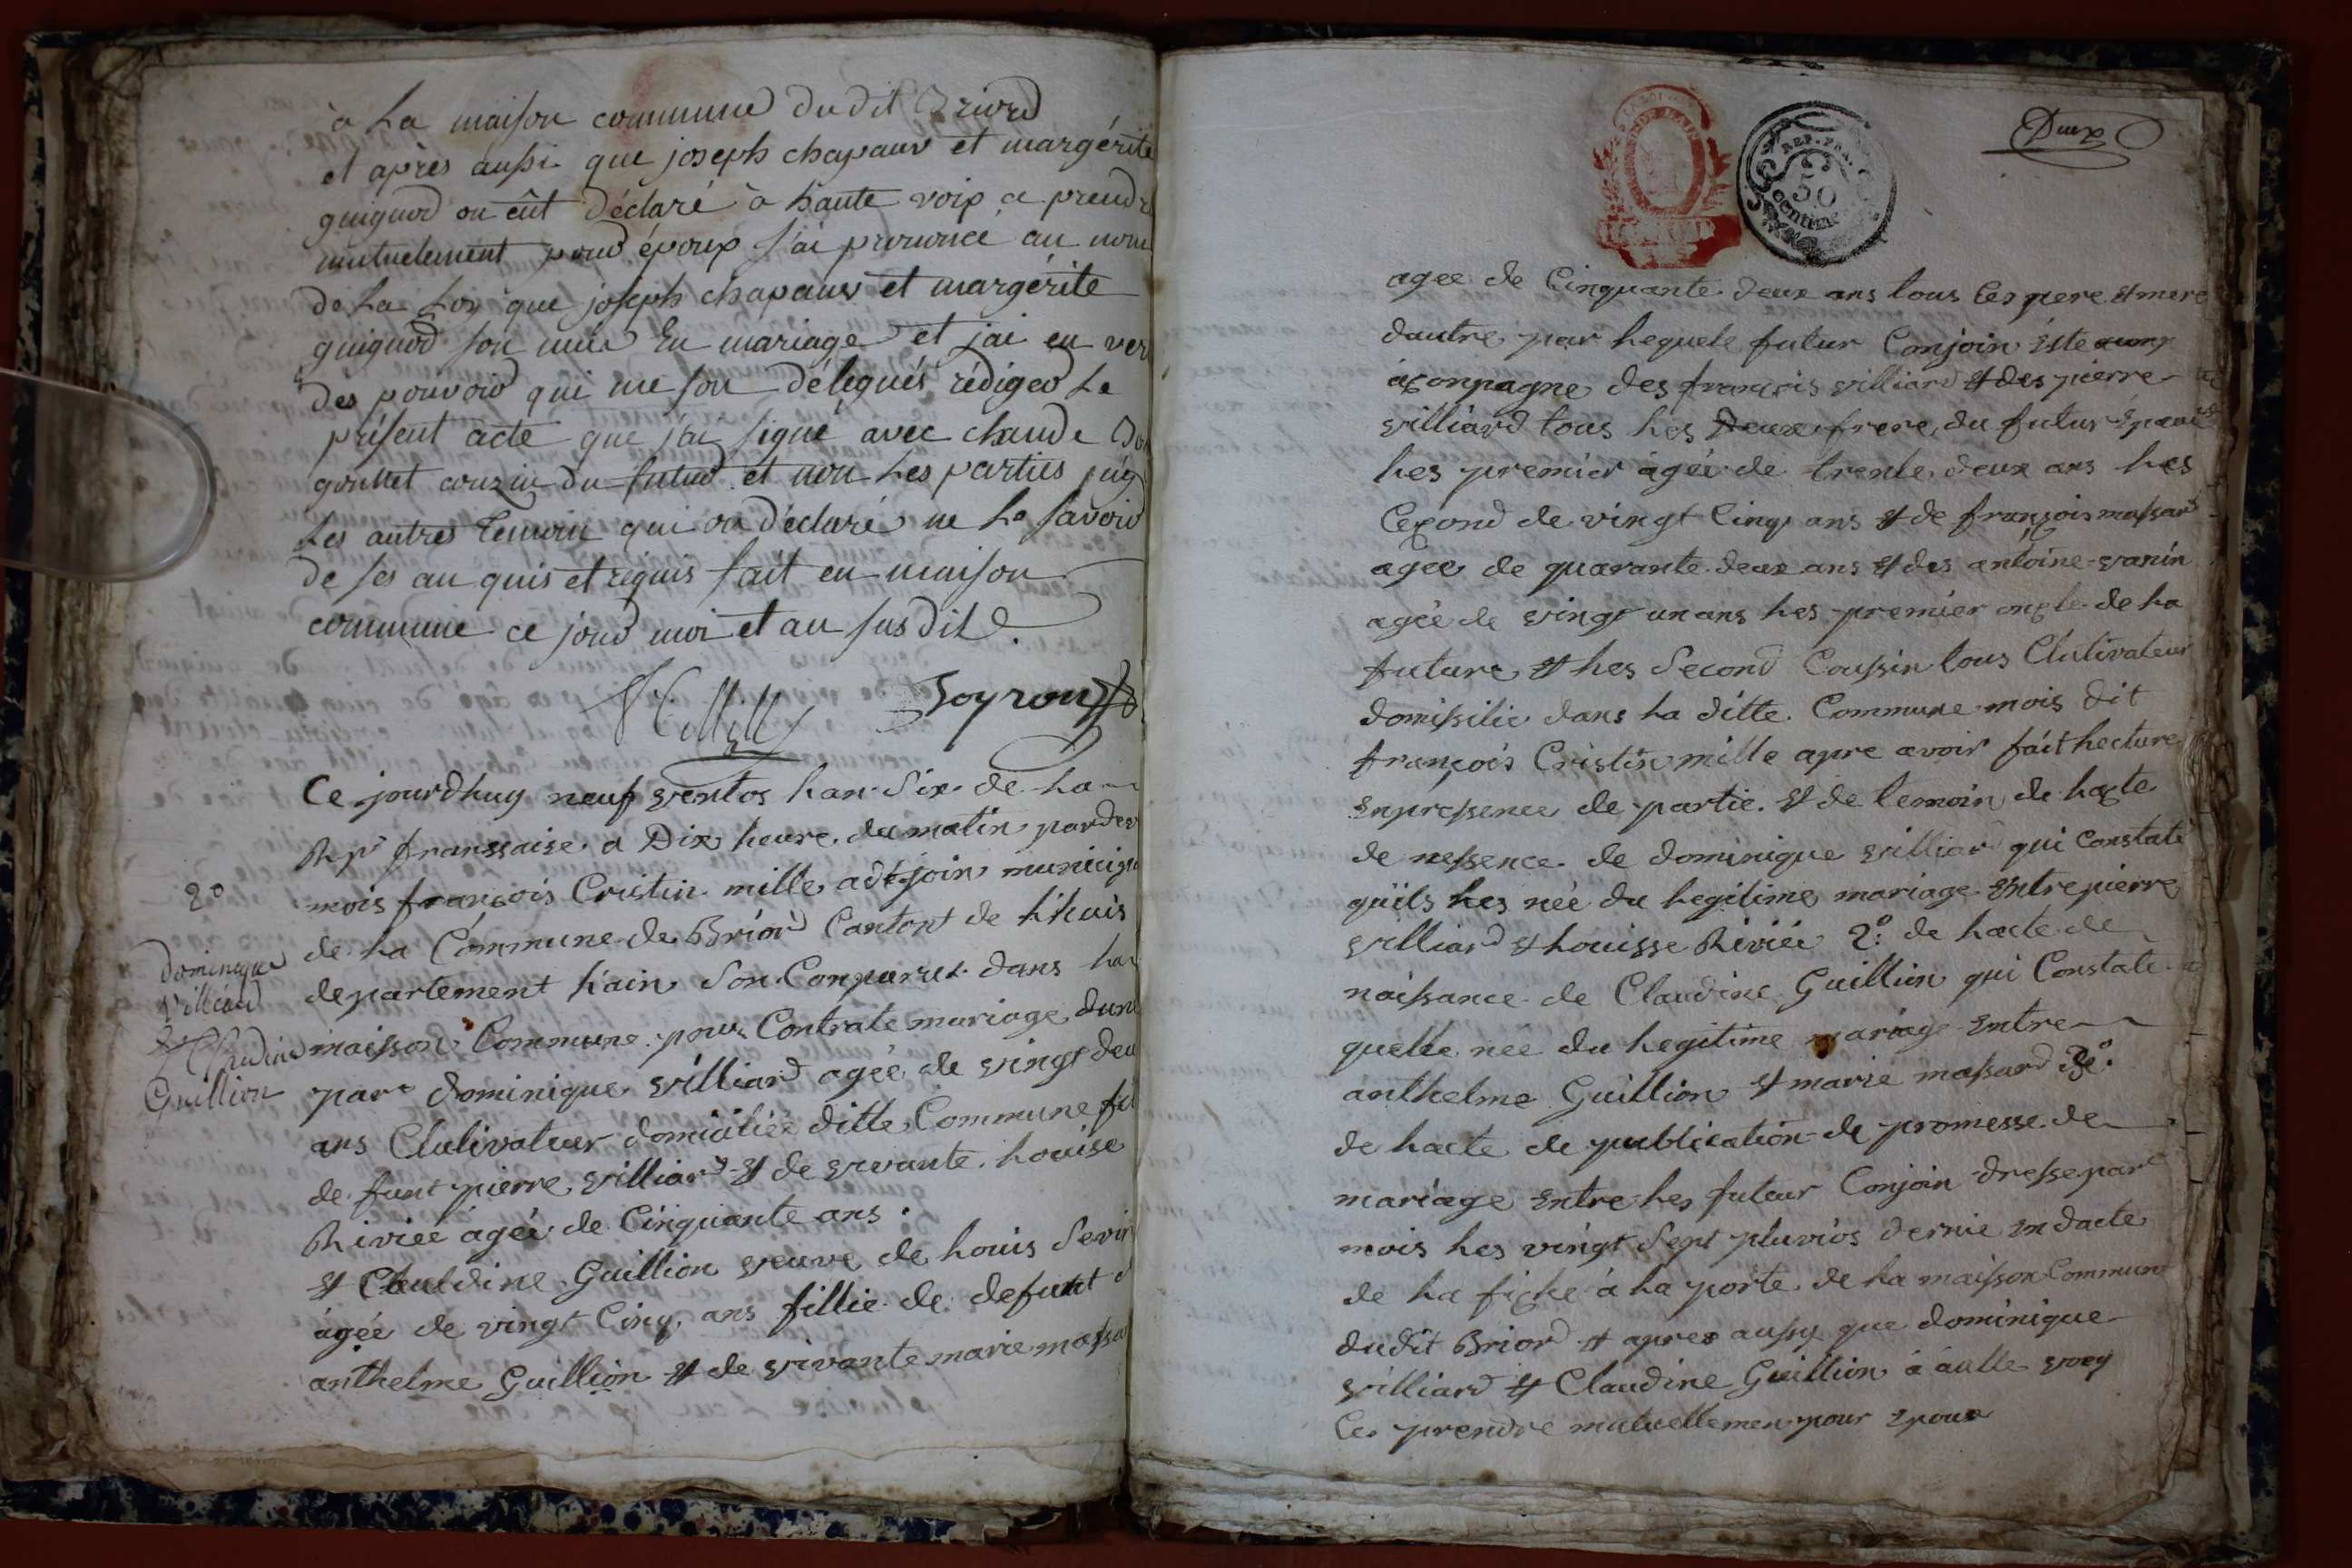 à La maison commune dudit Briord
et après aussi que joseph chapauw et margérite
guignod on eût déclaré à haute voix a prendre
mutuelement pour époux j'ai prononcé au nom
de La Loy que joseph chapauw et margérite
guignod son unis En mariage et j'ai en ver
des pouvoir qui me son délégués rédiger Le
présent acte que j'ai signé avec claude
goullet couzin du futur et non Les parties ny
Les autres temoin qui on déclaré ne Le savoir
de ses au quis et requis fait en maison
commune ce jour moi et an susdit
Soyron
Ce jourdhuy neuf ventos han Six de ha
Rp franssaise a Dix heure du matin pardev
mois françois Cristin mille adejoin municip
de ha Commune de Briord Canton de hihuis
departement hain Son Conparret dans ha
maisson Commune pour Contrate mariage dune
part dominique villiard agée de vingt deu
ans Clutivateur domicilié ditte Commune fil
de funt pierre villiard et de vivante houise
Riviée agée de Cinquante ans.
et Clauldine Guillion veuve de houis Sevin
àgée de vingt Cinq ans fillie de defunt d
anthelme Guillion et de vivante marie massa
2°
dominique
villiard
et Claudine
Guillion
Deux
REP. FRA.
50
centime
agee de Cinquante deux ans tous Ces pere et mere
dautre par hequele futur Conjoin éste
aconpagne des françois villiard et des pierre
villiard tous hes Deux frere du futur Epoux
hes premier agée de trente deux ans hes
Cegond de vingt Cinq ans et de françois massard
agée de quarante deux ans et des antoine vanin
agée de vingt un ans hes premier ongle de ha
future et hes Second Coussin tous Clutivateur
domissilie dans ha ditte Commune mois dit
françois Cristin mille apre avoir fait hecture
En pressence de partie et de temoin de hacte
de nessence de dominique villiard qui Constate
quils hes née du hegitime mariage Entre pierre
villiard et houisse Riviée 2° de hacte de
naissance de Claudine Guillion qui Constate
quelle née du hegitime mariage Entre
anthelme Guillion et marie massard 3e°
de hacte de publication de promesse de
mariage Entre hes futeur Conjoin dresse par
mois hes vingt Sept pluvios dernie en dacte
de ha fiche à ha porte de ha maisson Commune
dudit Briord et apres aussy que dominique
villiard et Claudine Guillion à aulle voey
Ce prendre mutuellemen pour Epoux